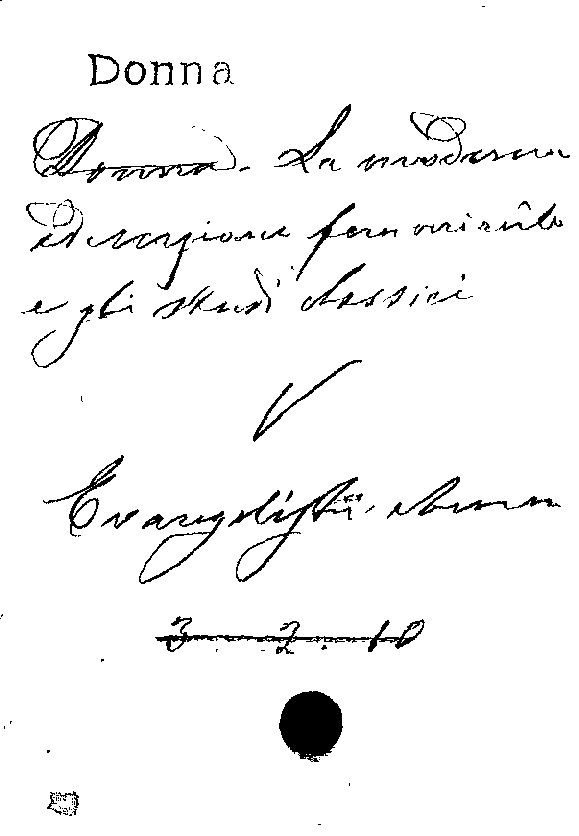 Donna
Donna. La moderna
educazione femminile
e gli studi classici
V
Evangelisti.
3. 2. 10